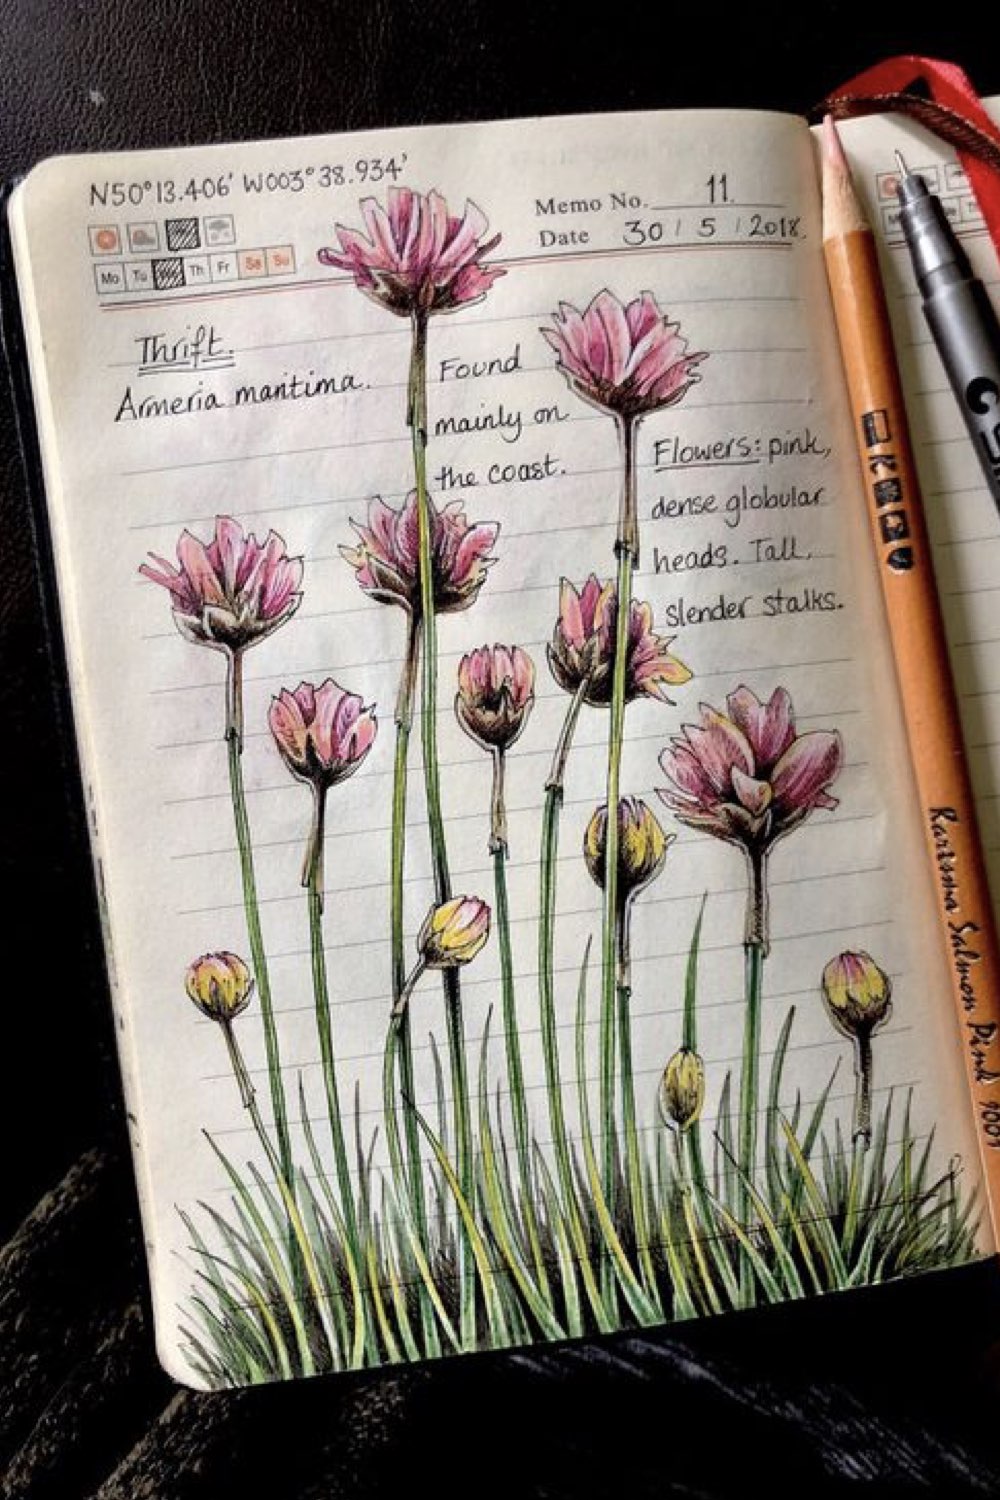 N50°13.406' W003°38.934'
Memo No. 11.
Date 30 / 5 / 2018.
Mo Tu Th Fr Sa Su
Thrift.
Armeria maritima.
Found
mainly on
the coast.
Flowers: pink,
dense globular
heads. Tall,
slender stalks.
Karisma Salmon Pink 1001